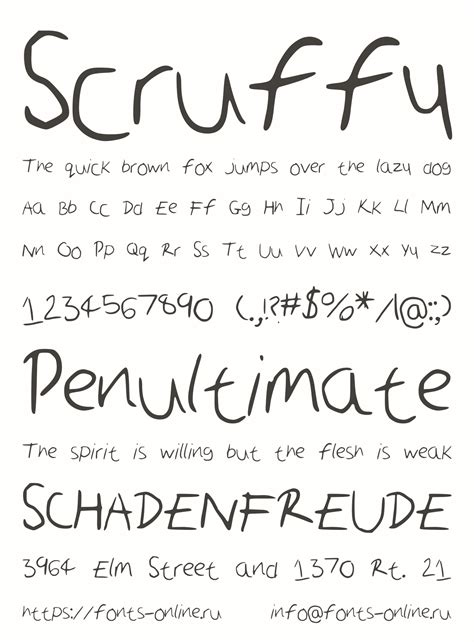 Scruffy
The quick brown fox jumps over the lazy dog
Aa Bb Cc Dd Ee Ff Gg Hh Ii Jj Kk Ll Mm
Nn Oo Pp Qq Rr Ss Tt Uu Vv Ww Xx Yy Zz
1234567890 (.,!?#$%*/\@:;)
Penultimate
The spirit is willing but the flesh is weak
SCHADENFREUDE
3964 Elm Street and 1370 Rt. 21
https://fonts-online.ru info@fonts-online.ru